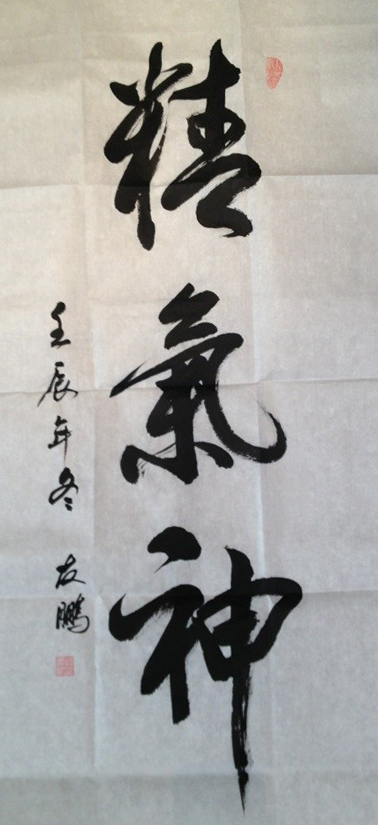 精氣神
壬辰年冬 友鵬